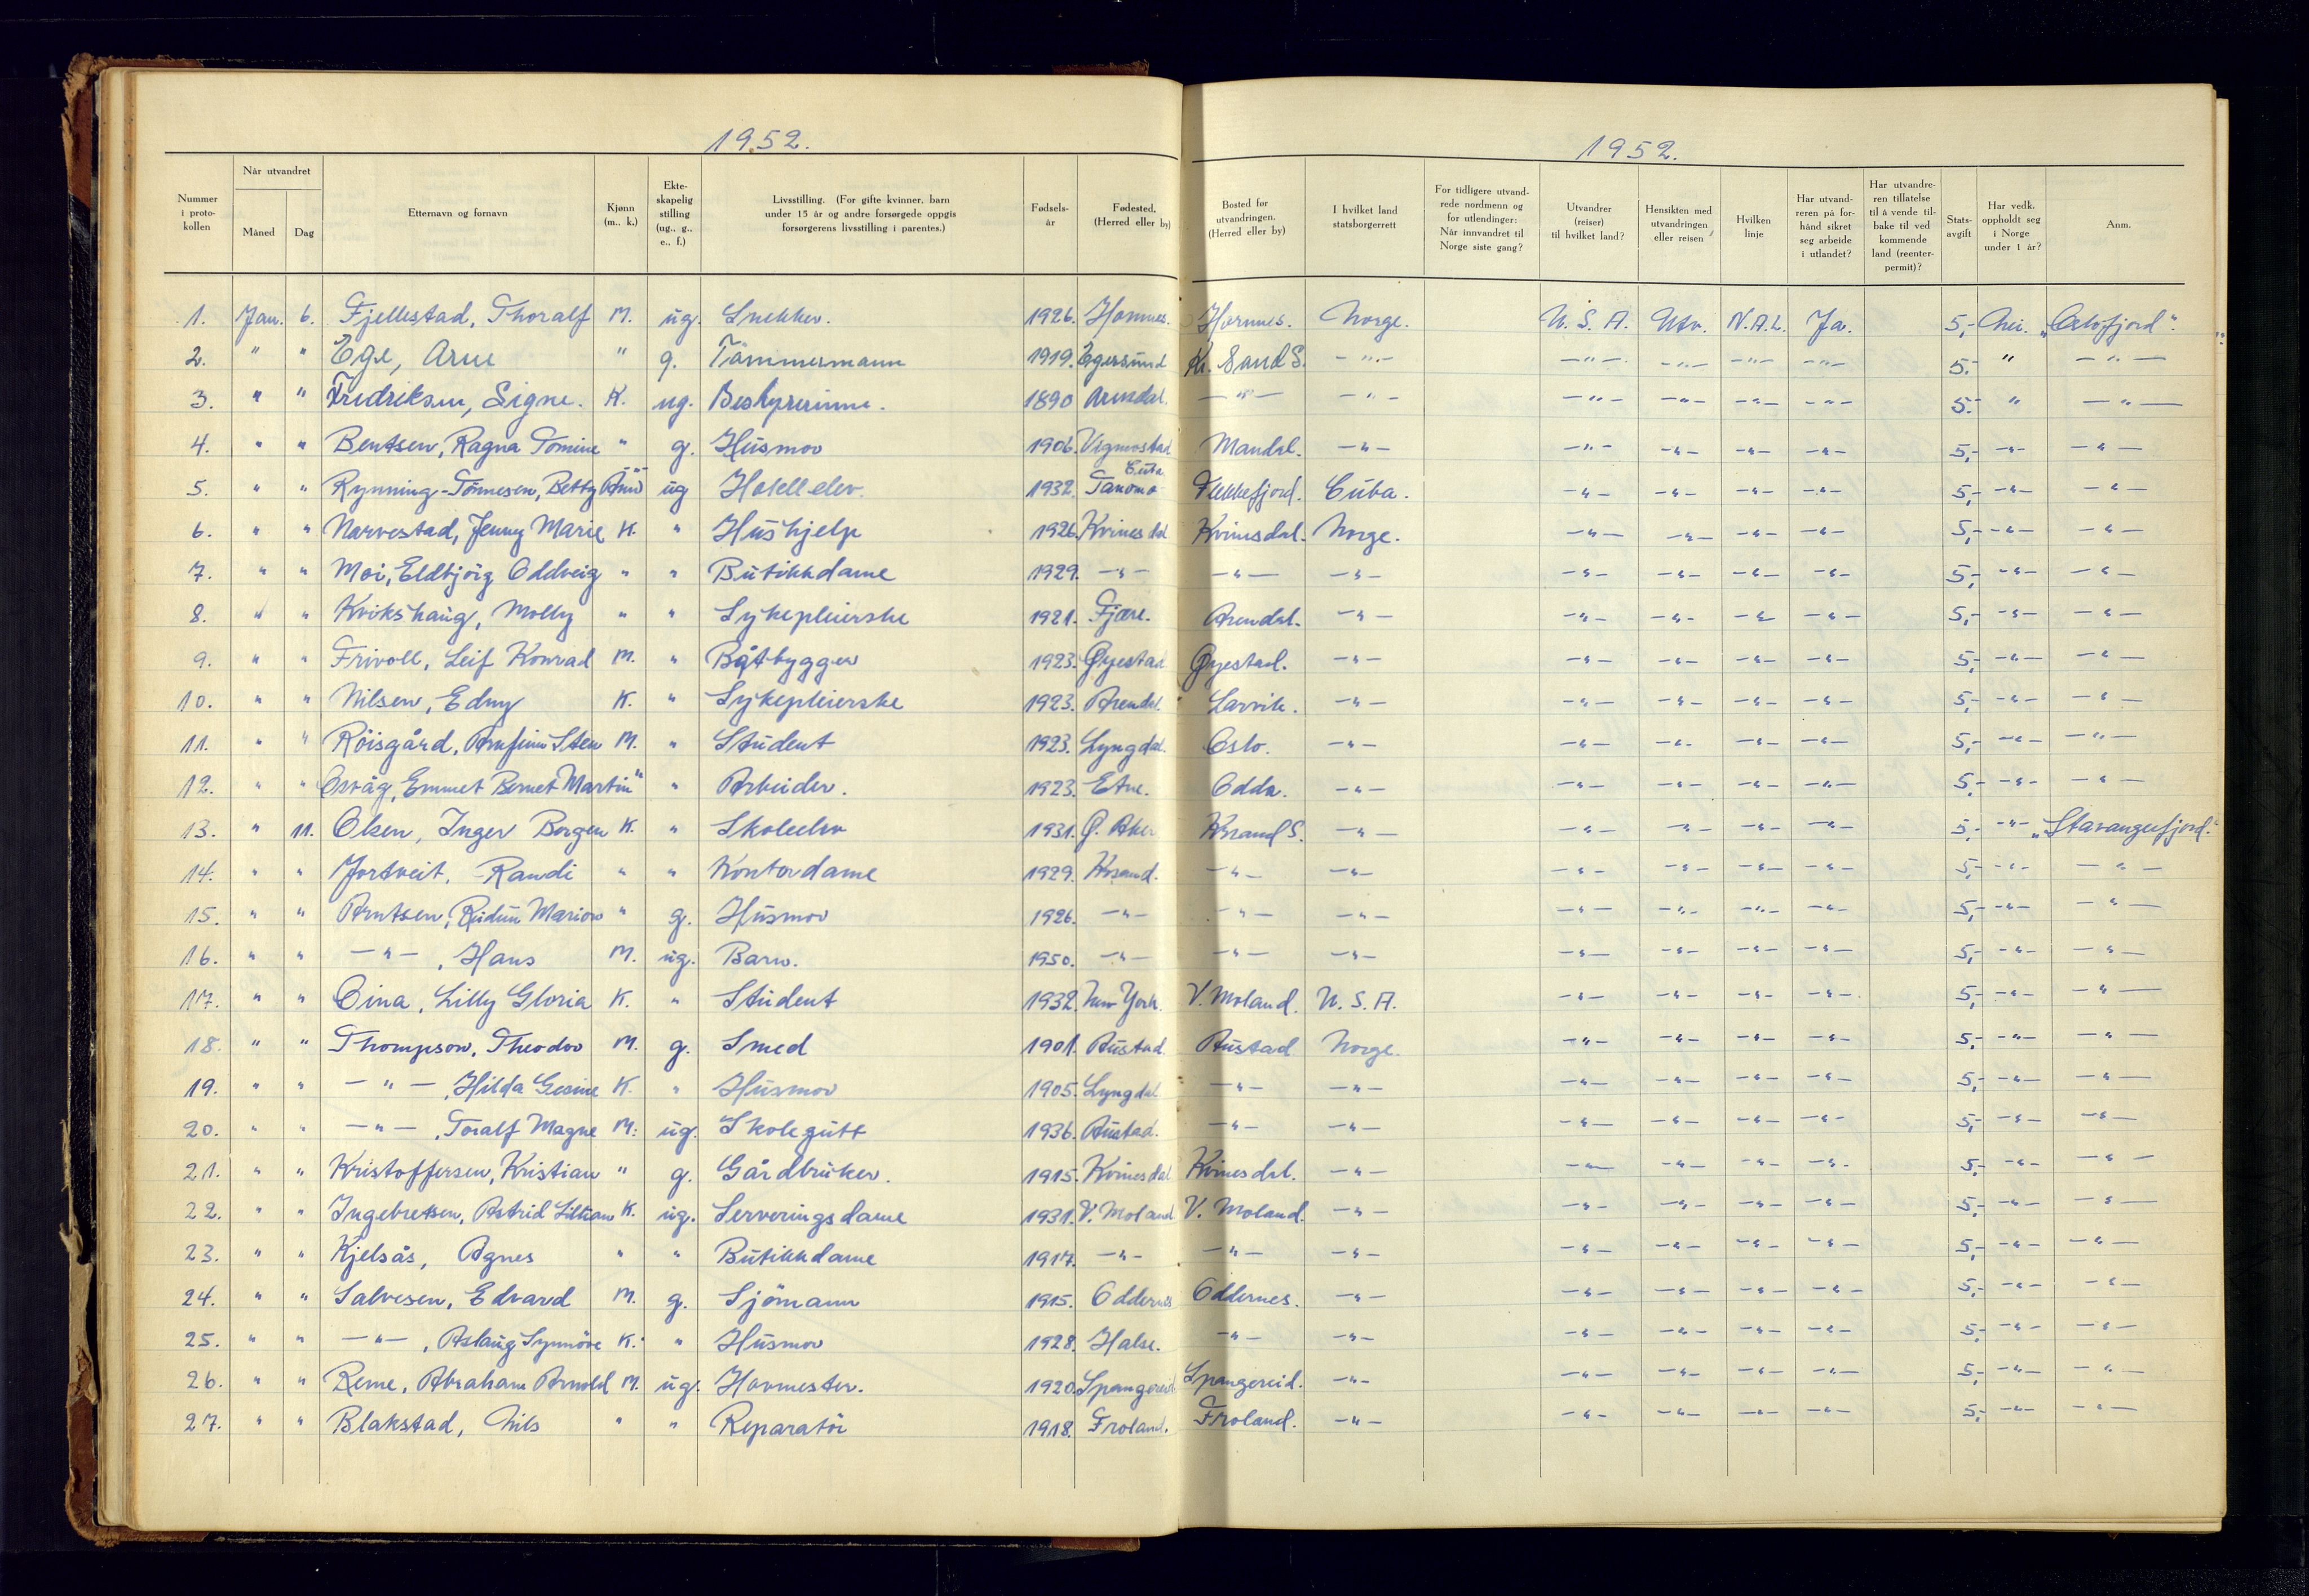 1952. 1952.
Nummer i protokollen | Når utvandret | Måned | Dag | Etternavn og fornavn | Kjønn (m., k.) | Ekteskapelig stilling (ug., g., e., f.) | Livsstilling. (For gifte kvinner, barn under 15 år og andre forsørgede oppgis forsørgerens livsstilling i parentes.) | Fødselsår | Fødested, (Herred eller by) | Bosted før utvandringen. (Herred eller by) | I hvilket land statsborgerrett | For tidligere utvandrede nordmenn og for utlendinger: Når innvandret til Norge siste gang? | Utvandrer (reiser) til hvilket land? | Hensikten med utvandringen eller reisen | Hvilken linje | Har utvandreren på forhånd sikret seg arbeide i utlandet? | Har utvandreren tillatelse til å vende tilbake til ved kommende land (reenterpermit)? | Statsavgift | Har vedk. oppholdt seg i Norge under 1 år? | Anm.
1. Jan. 6. Fjellestad, Thoralf M. ug. Snekker. 1926. Hornnes. Hornnes. Norge. U.S.A. Utv. N.A.L. Ja. 5,- Nei. „Oslofjord".
2. " " Ege, Arne " g. Tömmermann 1919. Egersund Kr. Sand S. -"- -"- -"- -"- -"- 5,- " -"-
3. " " Fredriksen, Signe. K. ug. Bestyrerinne. 1890 Arendal. -"- -"- -"- -"- -"- -"- 5,- " -"-
4. " " Bentsen, Ragna Tomine " g. Husmor 1906. Vigmostad Mandal. -"- -"- -"- -"- -"- 5,- -"- -"-
5. " " Rynning-Tönnesen, Betty " ug Hotellelev. 1932. Cuba Flekkefjord. Cuba. -"- -"- -"- -"- 5,- -"- -"-
6. " " Narvestad, Jenny Marie K. " Hushjelp 1926. Kvinesdal Kvinesdal. Norge. -"- -"- -"- -"- 5,- -"- -"-
7. " " Moi, Eldbjörg Oddveig " " Butikkdame 1929. -"- -"- -"- -"- -"- -"- -"- 5,- -"- -"-
8. " " Kvikshaug, Molly " " Sykepleierske 1921. Fjære. Arendal. -"- -"- -"- -"- -"- 5,- -"- -"-
9. " " Frivoll, Leif Konrad M. " Båtbygger 1923. Øyestad Øyestad. -"- -"- -"- -"- -"- 5,- -"- -"-
10. " " Nilsen, Edny K. " Sykepleierske 1923. Arendal. Larvik. -"- -"- -"- -"- -"- 5,- -"- -"-
11. " " Röisgård, Arnfinn Sten M. " Student 1923. Lyngdal. Oslo. -"- -"- -"- -"- -"- 5,- -"- -"-
12. " " Osvåg, Emmet Bernet Martin " " Arbeider. 1923. Etne. Odda. -"- -"- -"- -"- -"- 5,- -"- -"-
13. " 11. Olsen, Inger Borgen K. " Skoleelev 1931. Ø. Aker Krsand S. -"- -"- -"- -"- -"- 5,- -"- „Stavangerfjord."
14. " " Jortveit, Randi " " Kontordame 1929. Krsand. -"- -"- -"- -"- -"- -"- 5,- -"- -"-
15. " " Arntsen, Reidun Marion " g. Husmor 1926. -"- -"- -"- -"- -"- -"- -"- 5,- -"- -"-
16. " " -"-, Hans M. ug. Barn. 1950. -"- -"- -"- -"- -"- -"- -"- 5,- -"- -"-
17. " " Oina, Lilly Gloria K. " Student 1932. New York. V. Moland. U.S.A. -"- -"- -"- -"- 5,- -"- -"-
18. " " Thompson, Theodor M. g. Smed 1901. Austad Austad Norge. -"- -"- -"- -"- 5,- -"- -"-
19. " " -"-, Hilda Gesine K. " Husmor 1905. Lyngdal -"- -"- -"- -"- -"- -"- 5,- -"- -"-
20. " " -"-, Toralf Magne M. ug. Skolegutt 1936. Austad. -"- -"- -"- -"- -"- -"- 5,- -"- -"-
21. " " Kristoffersen, Kristian " g. Gårdbruker. 1915. Kvinesdal Kvinesdal. -"- -"- -"- -"- -"- 5,- -"- -"-
22. " " Ingebretsen, Astrid Lillian K. ug. Serveringsdame 1931. V. Moland V. Moland. -"- -"- -"- -"- -"- 5,- -"- -"-
23. " " Kjelsås, Agnes " " Butikkdame 1917. -"- -"- -"- -"- -"- -"- -"- 5,- -"- -"-
24. " " Salvesen, Edvard M. g. Sjömann 1915. Oddernes Oddernes. -"- -"- -"- -"- -"- 5,- -"- -"-
25. " " -"-, Aslaug Synnöve K. " Husmor 1928. Halse. -"- -"- -"- -"- -"- -"- 5,- -"- -"-
26. " " Reme, Abraham Arnold M. ug. Hovmester. 1920. Spangereid Spangereid. -"- -"- -"- -"- -"- 5,- -"- -"-
27. " " Blakstad, Nils " " Reparatör 1918. Froland. Froland. -"- -"- -"- -"- -"- 5,- -"- -"-